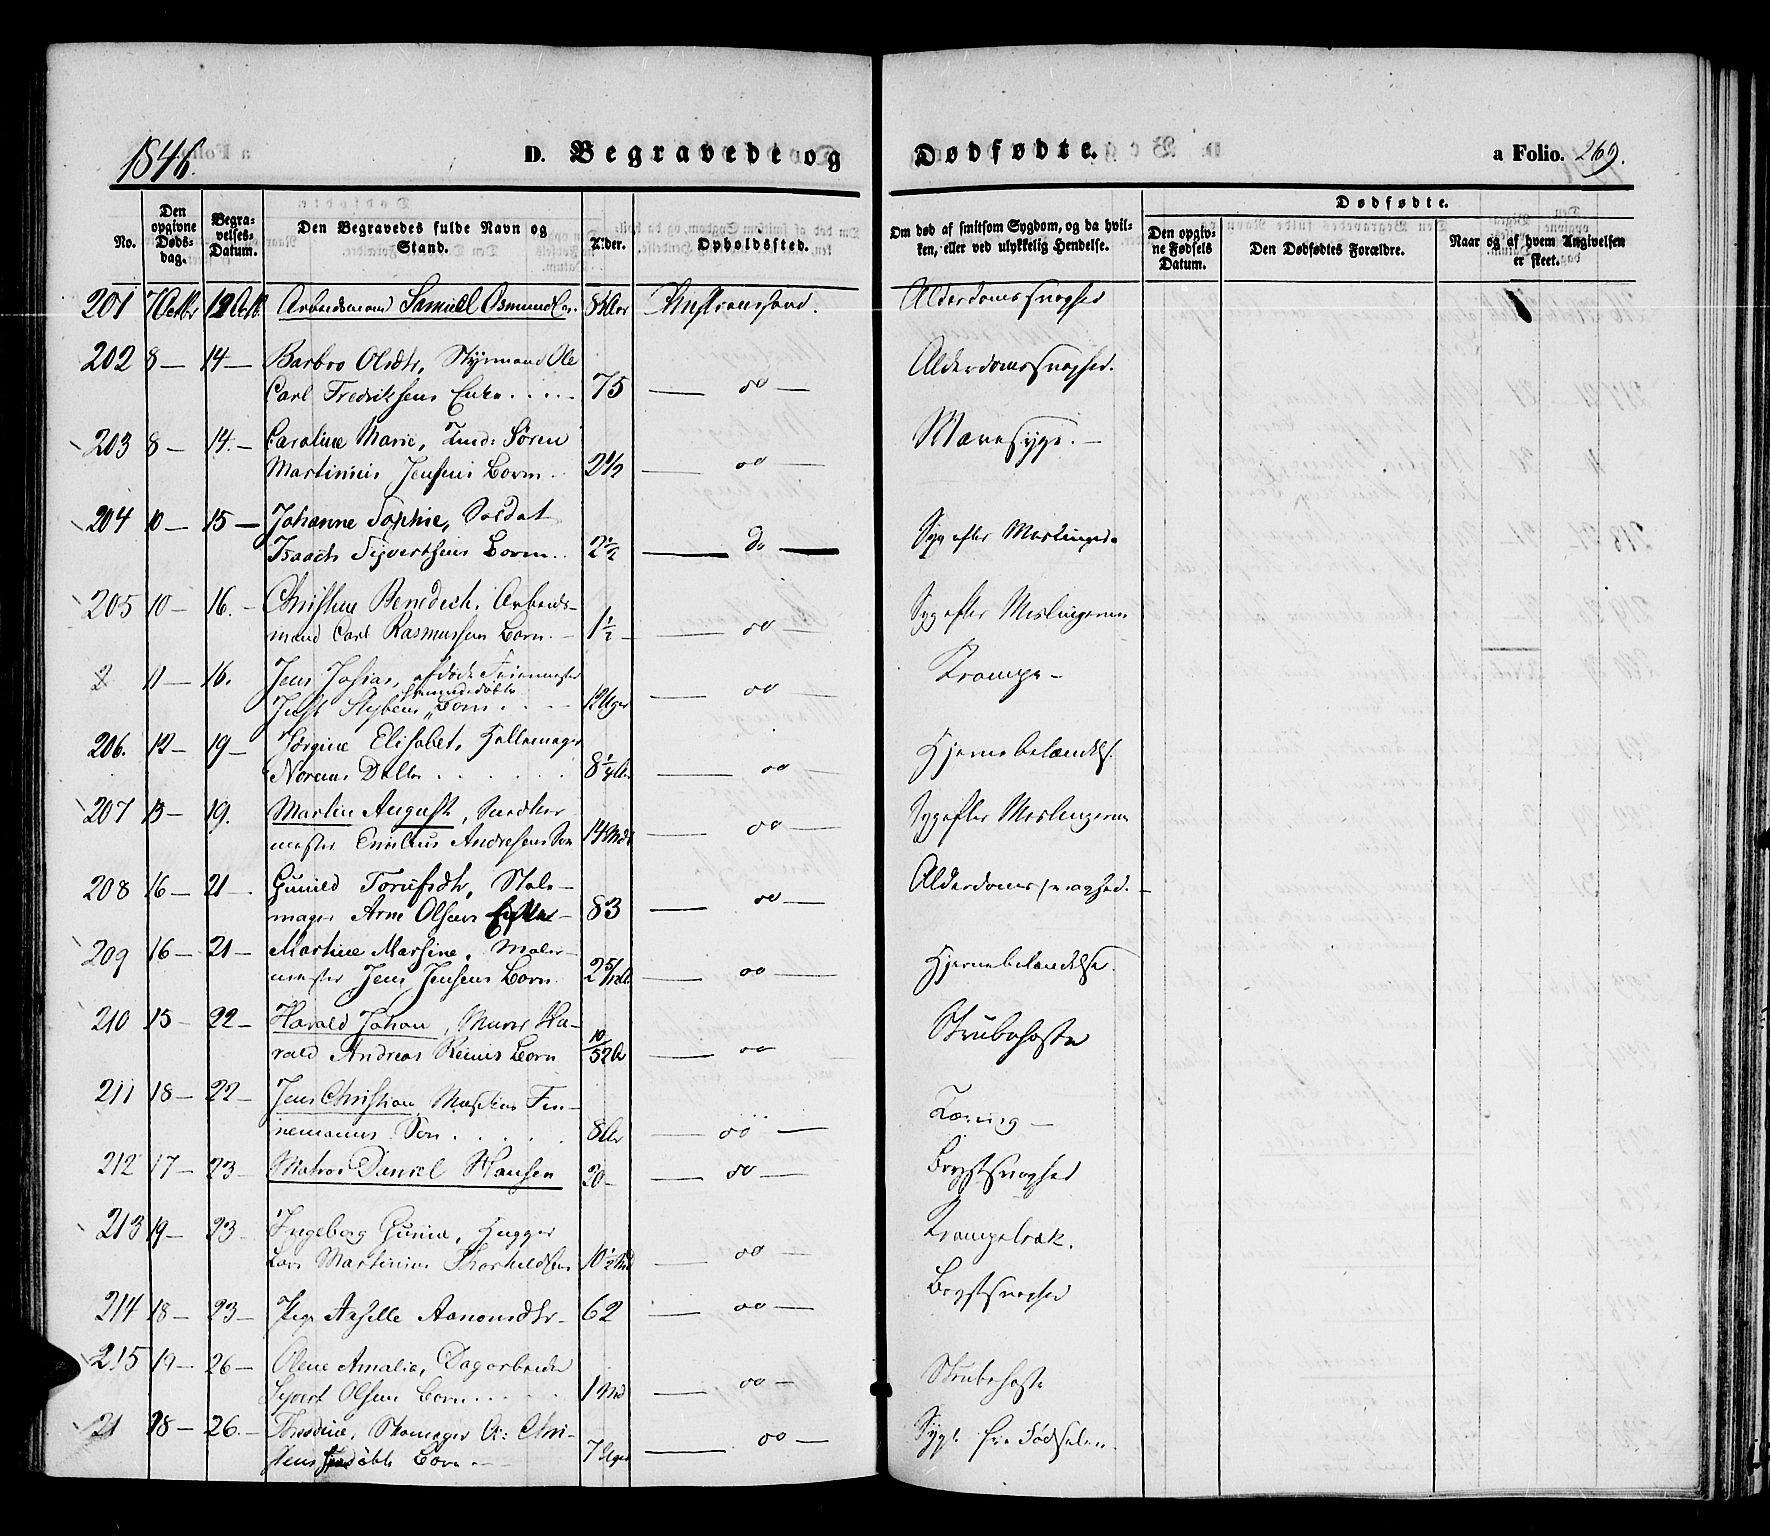 1846.
D. Begravede og Dødfødte.
a Folio. 269.
No.
Den opgivne Døds-dag.
Begra-velses-Datum.
Den Begravedes fulde Navn og Stand.
Alder.
Opholdssted.
Om død af smitsom Sygdom, og da hvil-ken, eller ved ulykkelig Hendelse.
Dødfødte.
Den opgiv-ne Fødsels Datum.
Den Dødfødtes Forældre.
Naar og af hvem Angivelsen er skeet.
201 7 Octbr 12 Octb. Arbeidsmand Samuel Osmundsen. Christianssand. Alderdomssvaghed
202 8 — 14 — Barbro Olsdtr, Styrmand Ole
Carl Fredriksens Enke . . . . . 75 — do — Alderdomssvaghed.
203 8 — 14. — Caroline Marie, Tind: Søren
Martinius Jensens Barn . 2 1/2 — do —
204 10 — 15 — Johanne Sophie, Soldat
Isaach Sivertsens Barn . . 2 1/2 — do — Syg efter Meslingerne
205 10 — 16. — Christine Benedict. Arbeids-
mand Carl Rasmussens Barn. — 1 1/2 — do — Syg efter Meslingerne
2 11 — 16. Jens Josias, afdøde Feiermester
hjemmedøbte
Barn . . . 12 Uger — do — Krampe —
206. 12 — 19 — Jørgine Elisabet,
. . . . . 8 1/4 Ar — do — Hjernebetændelse.
207 13 — 19. Martin August,
mester Emilius Andresens Søn 14 Mdr — do — Syg efter Meslingerne
208 16 — 21 — Gunild Torufsdtr, Stol-
mager Arne Olsens Enke — 83 — do — Alderdomssvaghed. —
209 16 — 21 — Martine Marsine, Maler-
mester Jens Jensens Barn 2 5/12 — do — Hjernebetændelse.
210 15 — 22 — Harald Johan, Murer Ha-
rald Andreas Reiners Barn 10/52 Ar — do — Strubehoste
211 18 — 22 — Jens Christian,
nemanns Søn . . . . . 8 Ar — do — Tæring —
212 17 — 23 — Matros Daniel Hansen 20 — — do — Brystsvaghed
213 19 — 23 — Ingeborg Gurine, Hugger
Lars Martinius 10 1/2 Md — do — Krampetræk.
214 18 — 23 — Pige Aasille Aanonsdtr — 62 — do — Brystsvaghed
215 19 — 26 — Olene Amalia, Dagarbeider
Syvert Olsens Barn . . . . . 1 Md — do — Strubehoste
21 18 — 26. — Theodine, Skomager A: Chri-
stens døbte Barn — 7 Uger — do — Syg fra Fødselen.